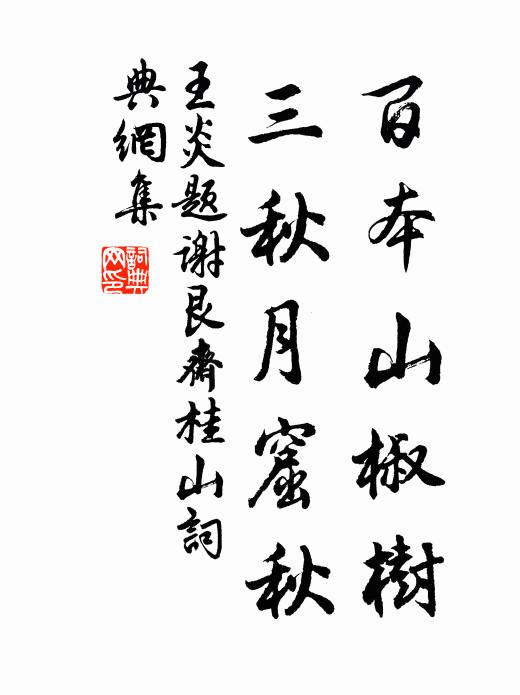 百本山椒樹
三秋月窟秋
王炎題谢艮齋桂山詞
典網集
詞典网印